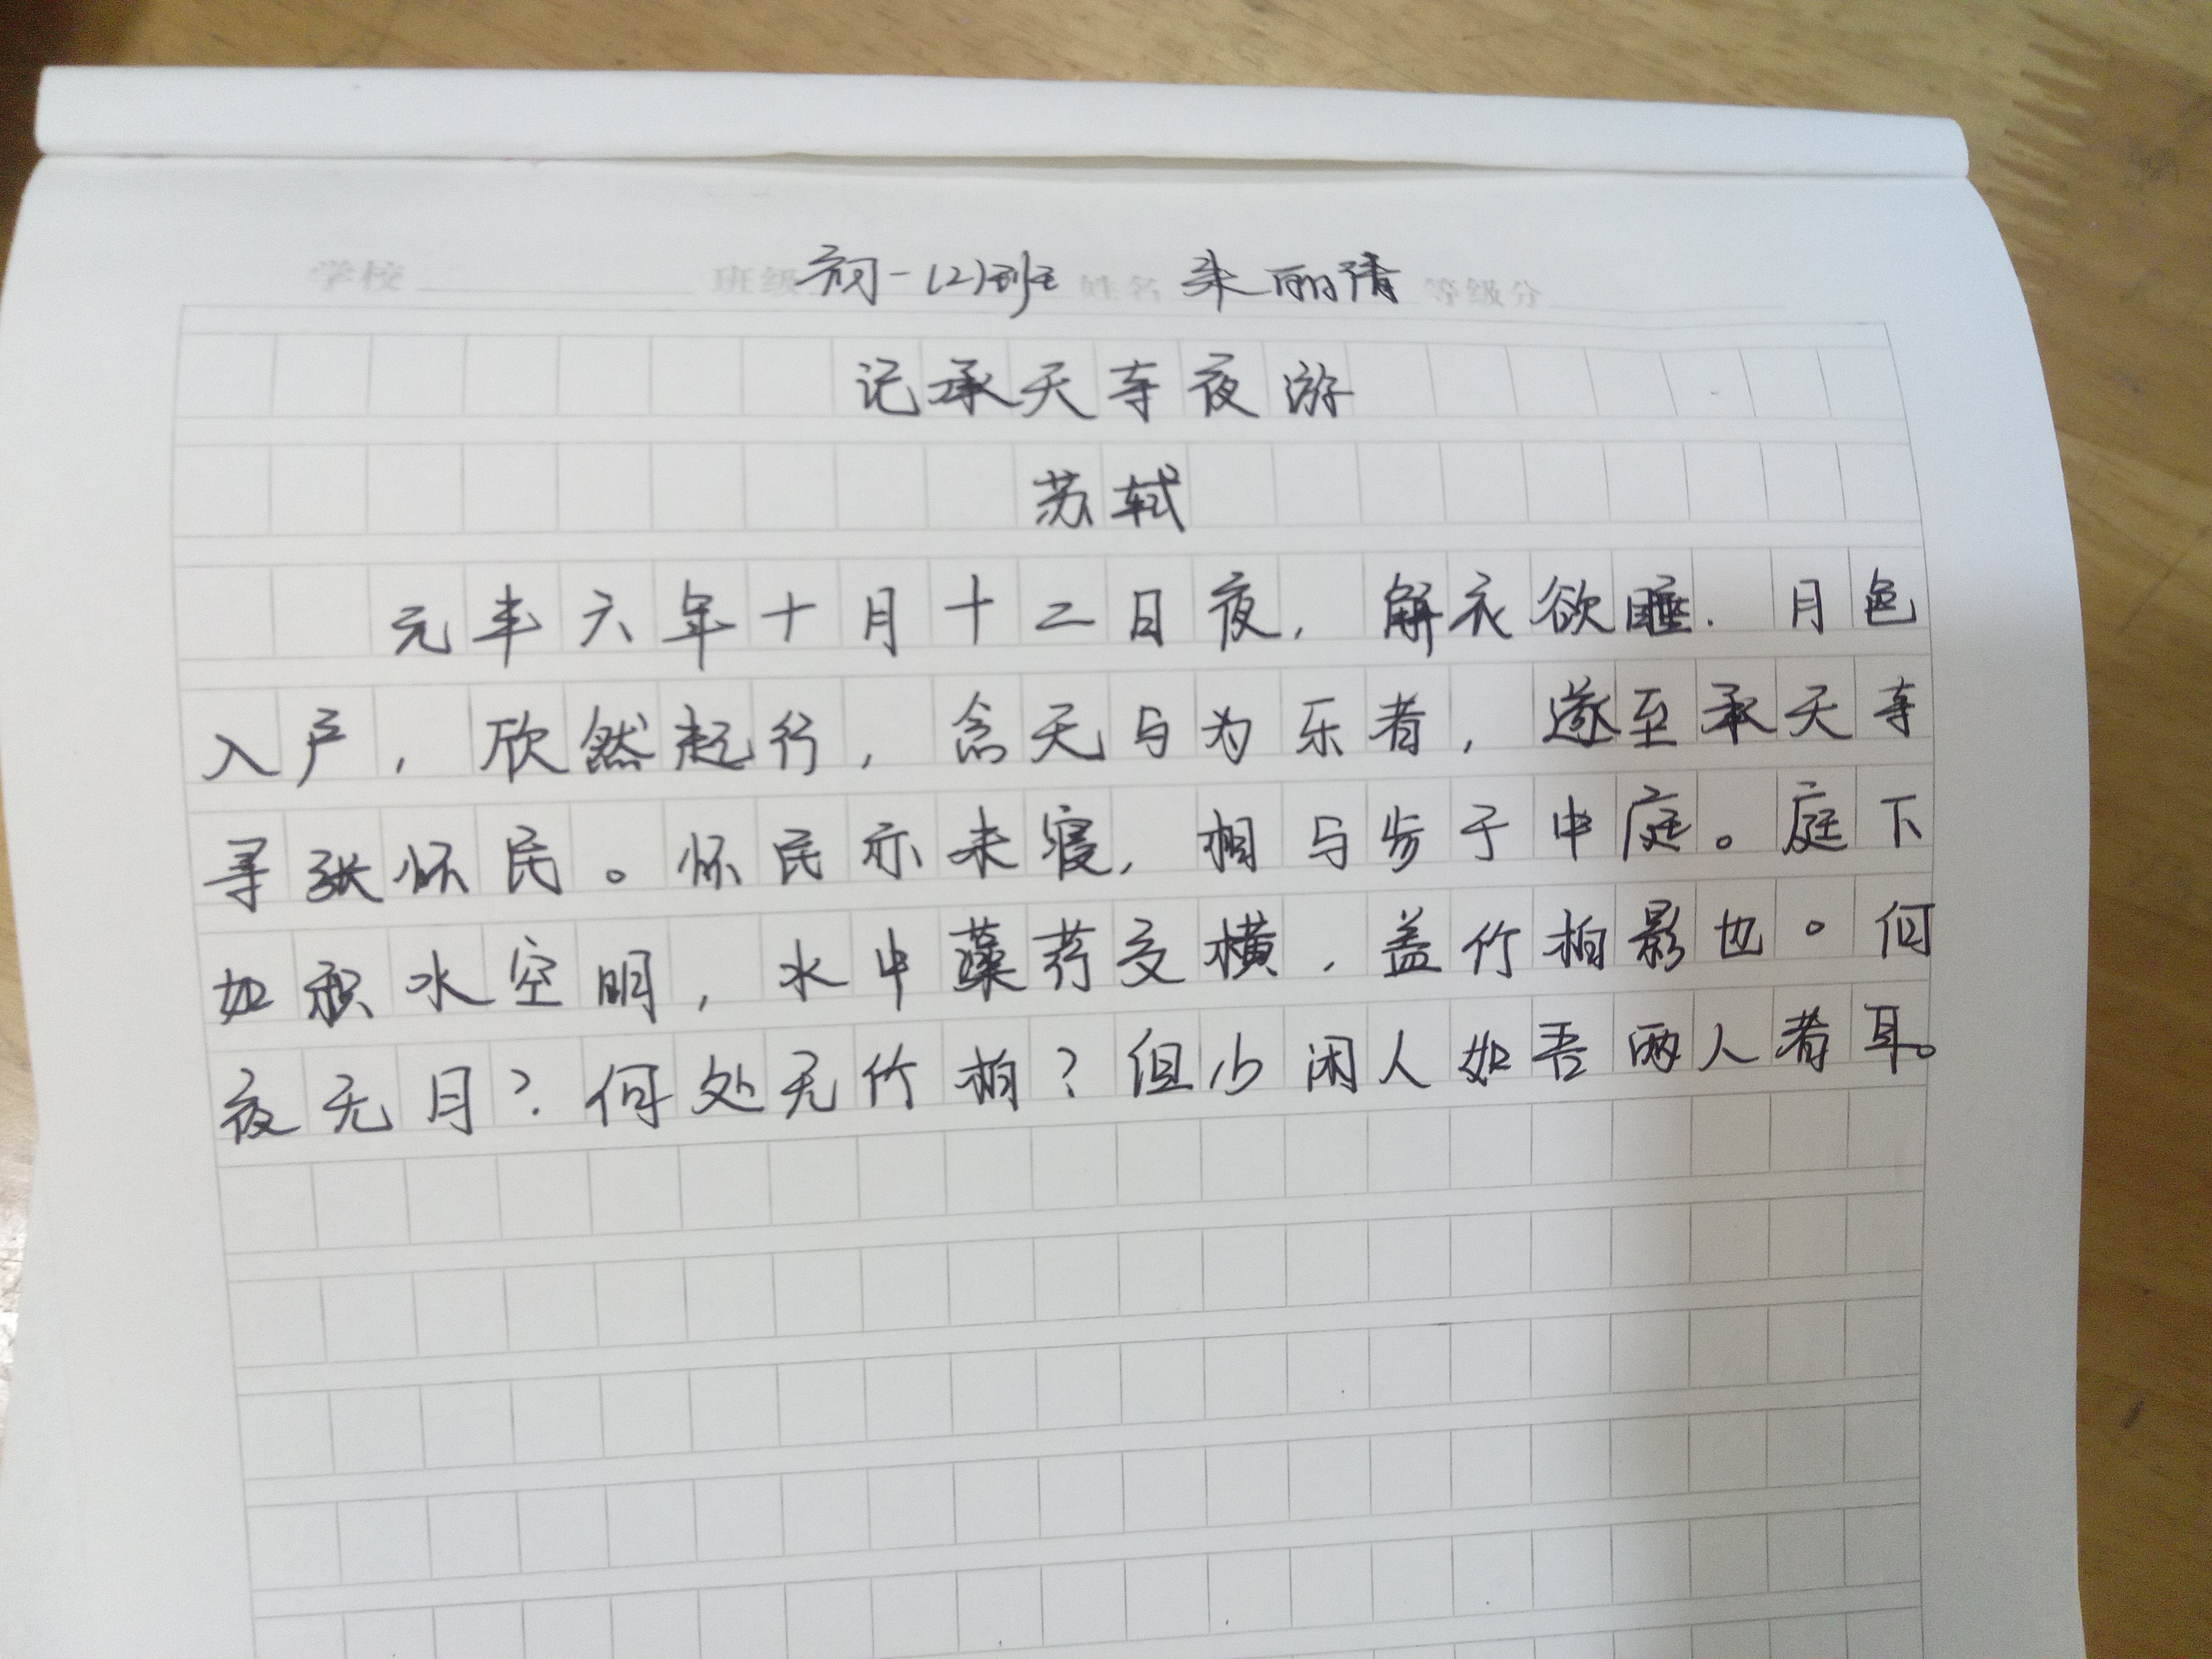 学校 班级 初一(2)班 姓名 朱丽清 等级分
记承天寺夜游
苏轼
元丰六年十月十二日夜,解衣欲睡.月色
入户,欣然起行,念无与为乐者,遂至承天寺
寻张怀民。怀民亦未寝,相与步于中庭。庭下
如积水空明,水中藻荇交横,盖竹柏影也。何
夜无月?何处无竹柏?但少闲人如吾两人者耳。